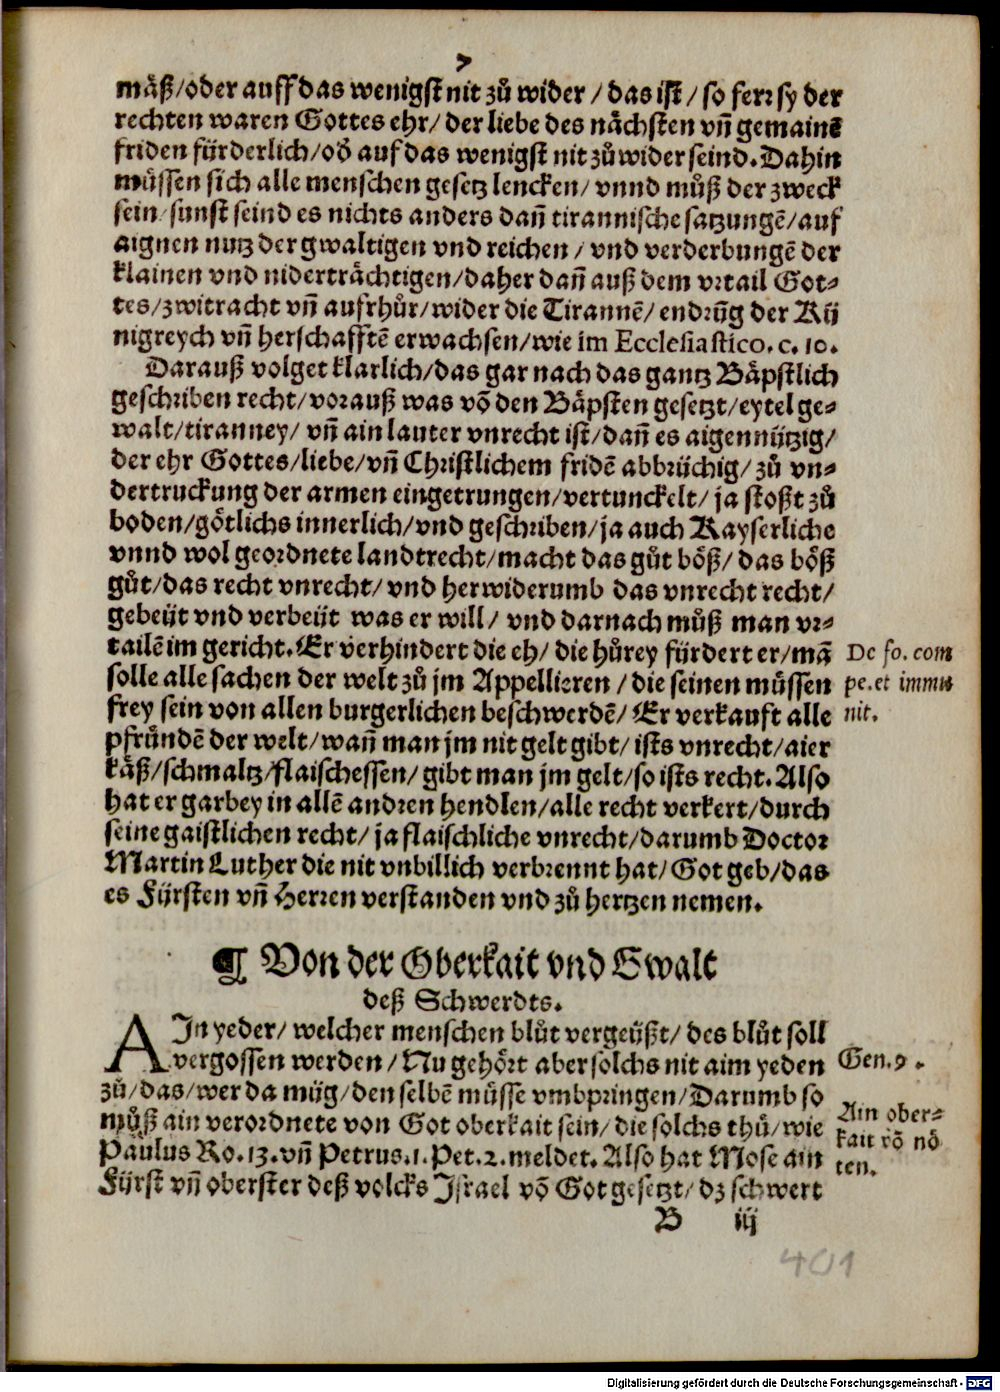 7
mäß/oder auff das wenigst nit zů wider / das ist / so ferꝛ sy der
rechten waren Gottes ehr/ der liebe des nächsten vñ gemainē
friden fürderlich/oď auf das wenigst nit zů wider seind. Dahin
müssen sich alle menschen gesetz lencken/ vnnd můß der zweck
sein/ sunst seind es nichts anders dañ tirannische satzungē/auf
aignen nutz der gwaltigen vnd reichen / vnd verderbungē der
klainen vnd niderträchtigen/daher dañ auß dem vꝛtail Got⸗
tes/zwitracht vñ aufrhůr/wider die Tirannē/ endꝛūg der Kü
nigreych vñ herschafftē erwachsen/wie im Ecclesiastico. c. 10.
Darauß volget klarlich/das gar nach das gantz Bäpstlich
geschꝛiben recht/voꝛauß was vō den Bäpsten gesetzt/eytel ge⸗
walt/tiranney/ vñ ain lauter vnrecht ist/dañ es aigennützig/
der ehr Gottes/liebe/vñ Christlichem fridē abbꝛüchig/ zů vn⸗
dertruckung der armen eingetrungen/vertunckelt/ ja stoßt zů
boden/götlichs innerlich/vnd geschꝛiben/ja auch Kayserliche
vnnd wol geoꝛdnete landtrecht/macht das gůt böß/ das böß
gůt/das recht vnrecht/ vnd herwiderumb das vnrecht recht/
gebeüt vnd verbeüt was er will/ vnd darnach můß man vꝛ⸗
tailē im gericht. Er verhindert die eh/ die hůrey fürdert er/mā
solle alle sachen der welt zů jm Appellieren / die seinen müssen
frey sein von allen burgerlichen beschwerdē/ Er verkauft alle
pfründē der welt/wañ man jm nit gelt gibt/ ists vnrecht/aier
käß/schmaltz/flaischessen/ gibt man jm gelt/so ists recht. Also
hat er garbey in allē andꝛen hendlen/alle recht verkert/durch
seine gaistlichen recht/ ja flaischliche vnrecht/darumb Doctoꝛ
Martin Luther die nit vnbillich verbꝛennt hat/ Got geb/das
es Fürsten vñ Herꝛen verstanden vnd zů hertzen nemen.
De fo. com
pe. et immu
nit.
¶ Von der Oberkait vnd Gwalt
deß Schwerdts.
AJn yeder/ welcher menschen blůt vergeüßt/ des blůt soll
vergossen werden / Nu gehört aber solchs nit aim yeden
zů/das/wer da müg/den selbē müsse vmbpꝛingen/Darumb so
můß ain veroꝛdnete von Got oberkait sein/ die solchs thů/wie
Paulus Ro. 13. vñ Petrus. 1. Pet. 2. meldet. Also hat Mose ain
Fürst vñ oberster deß volcks Jsrael vō Got gesetzt/ dz schwert
Gen. 9.
Ain ober⸗
kait vō nö
ten.
B iij
401
Digitalisierung gefördert durch die Deutsche Forschungsgemeinschaft - DFG